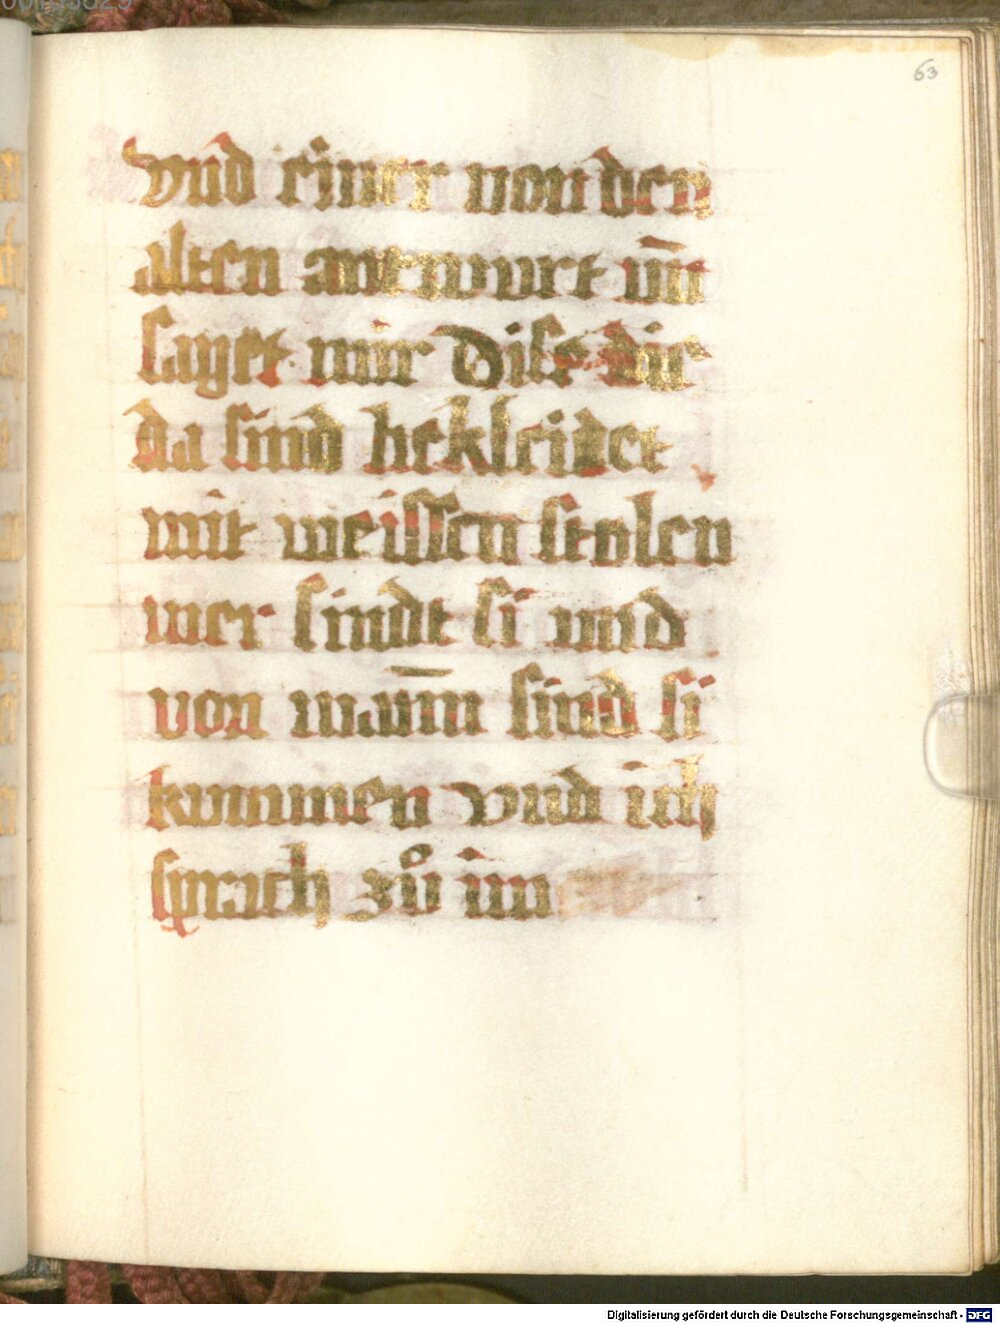 63
vnd einer von den
alten antwurt uñ
saget mir Dise die
da sind bekleidet
mit weissen stolen
wer sindt si vnd
von wann̄ sind si
kummen vnd ich
sprach zů im
Digitalisierung gefördert durch die Deutsche Forschungsgemeinschaft - DFG